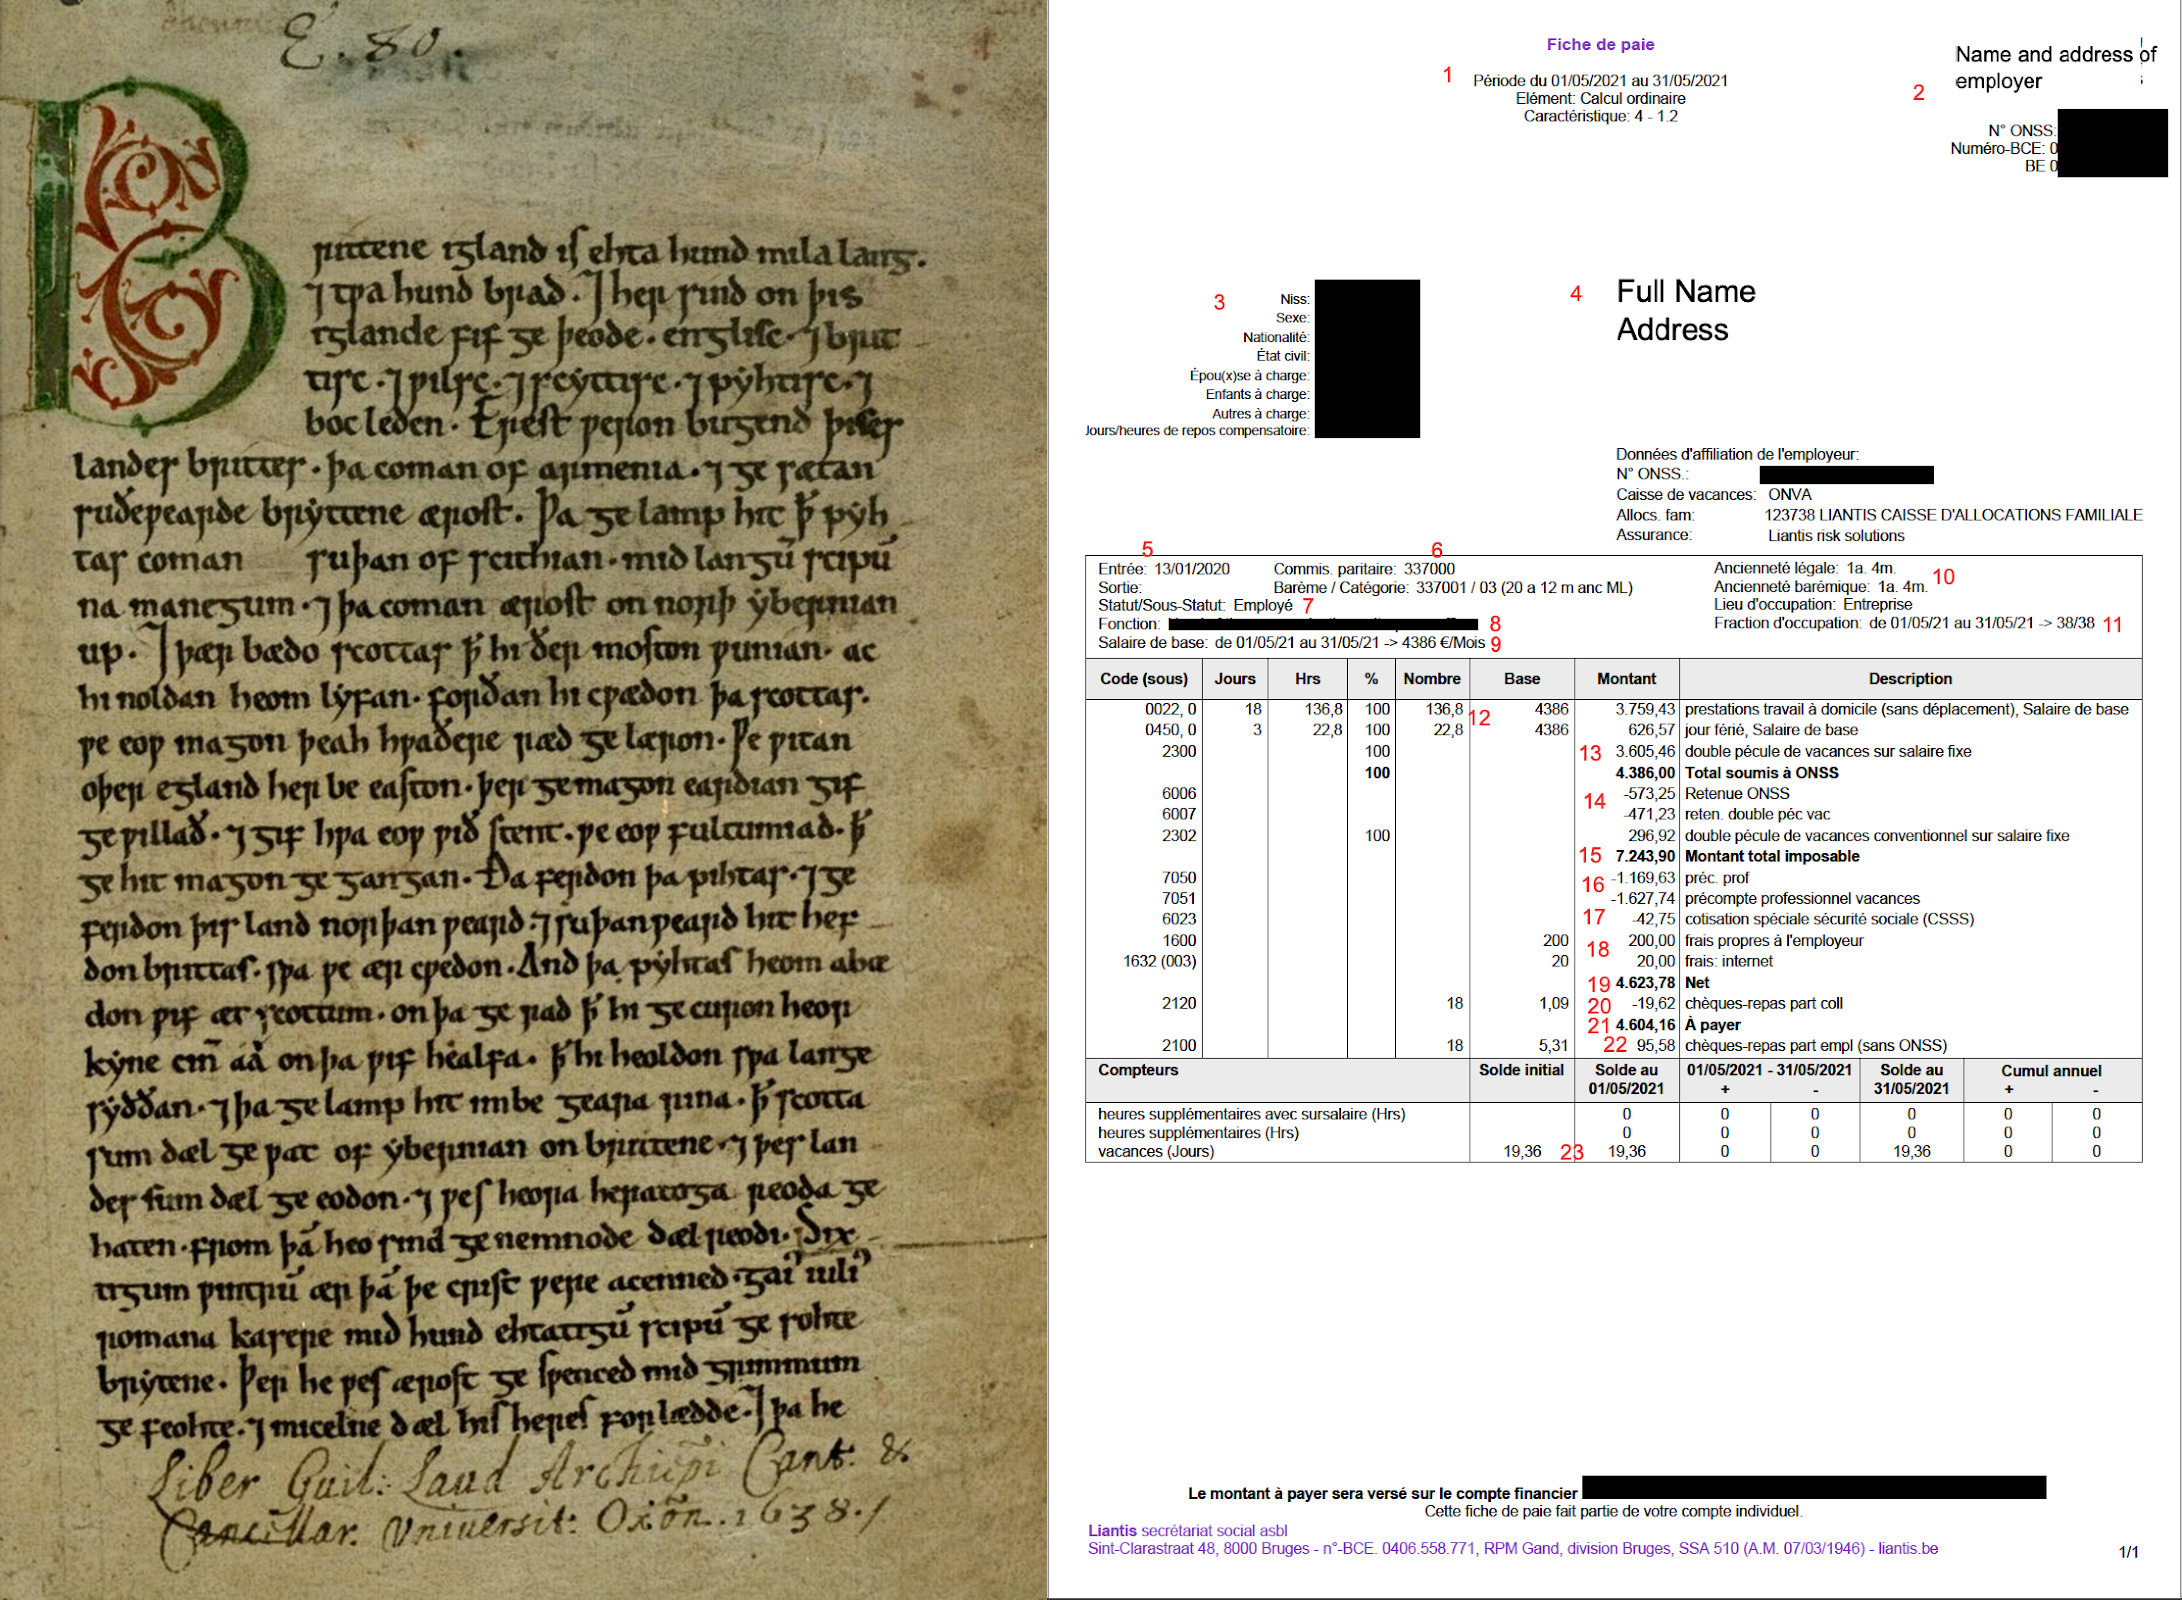 E. 80.
Brittene igland is ehta hund mila lang.
⁊ tƿa hund brad. ⁊ her sind on þis
iglande fif ge þeode. englisc. ⁊ brit
tisc. ⁊ ƿilsc. ⁊ scyttisc. ⁊ pyhtisc. ⁊
boc leden. Erest ƿeron bugend þises
landes brittes. þa coman of armenia. ⁊ ge sætan
suðeƿearde bryttene ærost. Þa ge lamp hit ꝥ pyh
tas coman suþan of scithian. mid langū scipū
na manegum. ⁊ þa coman ærost on norþ ybernian
up. ⁊ þær bædo scottas ꝥ hi ðer moston ƿunian. ac
hi noldan heom lyfan. forðan hi cƿædon þa scottas.
ƿe eoƿ magon þeah hƿaðere ræd ge læron. Ƿe ƿitan
oþer egland her be easton. þer ge magon eardian gif
ge ƿillað. ⁊ gif hƿa eoƿ ƿið stent. ƿe eoƿ fultumiað. ꝥ
ge hit magon ge gangan. Ða ferdon þa pihtas. ⁊ ge
ferdon þis land norþan ƿeard. ⁊ suþanƿeard hit hef
don brittas. sƿa ƿe ær cƿedon. And þa pyhtas heom abæ
don ƿif æt scottum. on þa ge rad ꝥ hi ge curon heor
kyne cin̄ aa on þa ƿif healfa. ꝥ hi heoldon sƿa lange
syððan. ⁊ þa ge lamp hit imbe geara rina. ꝥ scotta
sum dæl ge ƿat of ybernian on brittene. ⁊ þes lan
des sum dæl ge eodon. ⁊ ƿes heora heratoga reoda ge
haten. from þā heo sind ge nemnode dæl reodi. Six
tigum ƿintrū ær þā þe crist ƿere acenned. gai᾽ iuli᾽
romana kasere mid hund ehtatigū scipū ge sohte
brytene. Þer he ƿes ærost ge sƿenced mid grimmum
ge feohte. ⁊ micelne dæl his heres forlædde. ⁊ þa he
Liber Guil: Laud Archiēpi Cant: &
Cancellar. Vniuersit: Oxōn. 1638.
Fiche de paie
1 Période du 01/05/2021 au 31/05/2021
Elément: Calcul ordinaire
Caractéristique: 4 - 1.2
Name and address of
employer
2
N° ONSS:
Numéro-BCE: 0
BE 0
3 Niss:
Sexe:
Nationalité:
État civil:
Épou(x)se à charge:
Enfants à charge:
Autres à charge:
Jours/heures de repos compensatoire:
4 Full Name
Address
Données d'affiliation de l'employeur:
N° ONSS.:
Caisse de vacances: ONVA
Allocs. fam: 123738 LIANTIS CAISSE D'ALLOCATIONS FAMILIALE
Assurance: Liantis risk solutions
5 6
Entrée: 13/01/2020 Commis. paritaire: 337000 Ancienneté légale: 1a. 4m. 10
Sortie: Barème / Catégorie: 337001 / 03 (20 a 12 m anc ML) Ancienneté barémique: 1a. 4m.
Statut/Sous-Statut: Employé 7 Lieu d'occupation: Entreprise
Fonction: 8 Fraction d'occupation: de 01/05/21 au 31/05/21 -> 38/38 11
Salaire de base: de 01/05/21 au 31/05/21 -> 4386 €/Mois 9
Code (sous) Jours Hrs % Nombre Base Montant Description
0022, 0 18 136,8 100 136,8 12 4386 3.759,43 prestations travail à domicile (sans déplacement), Salaire de base
0450, 0 3 22,8 100 22,8 4386 626,57 jour férié, Salaire de base
2300 100 13 3.605,46 double pécule de vacances sur salaire fixe
100 4.386,00 Total soumis à ONSS
6006 14 -573,25 Retenue ONSS
6007 -471,23 reten. double péc vac
2302 100 296,92 double pécule de vacances conventionnel sur salaire fixe
15 7.243,90 Montant total imposable
7050 16 -1.169,63 préc. prof
7051 -1.627,74 précompte professionnel vacances
6023 17 -42,75 cotisation spéciale sécurité sociale (CSSS)
1600 200 18 200,00 frais propres à l'employeur
1632 (003) 20 20,00 frais: internet
19 4.623,78 Net
2120 18 1,09 20 -19,62 chèques-repas part coll
21 4.604,16 À payer
2100 18 5,31 22 95,58 chèques-repas part empl (sans ONSS)
Compteurs Solde initial Solde au 01/05/2021 - 31/05/2021 Solde au Cumul annuel
01/05/2021 + - 31/05/2021 + -
heures supplémentaires avec sursalaire (Hrs) 0 0 0 0 0 0
heures supplémentaires (Hrs) 0 0 0 0 0 0
vacances (Jours) 19,36 23 19,36 0 0 19,36 0 0
Le montant à payer sera versé sur le compte financier
Cette fiche de paie fait partie de votre compte individuel.
Liantis secrétariat social asbl
Sint-Clarastraat 48, 8000 Bruges - n°-BCE. 0406.558.771, RPM Gand, division Bruges, SSA 510 (A.M. 07/03/1946) - liantis.be
1/1